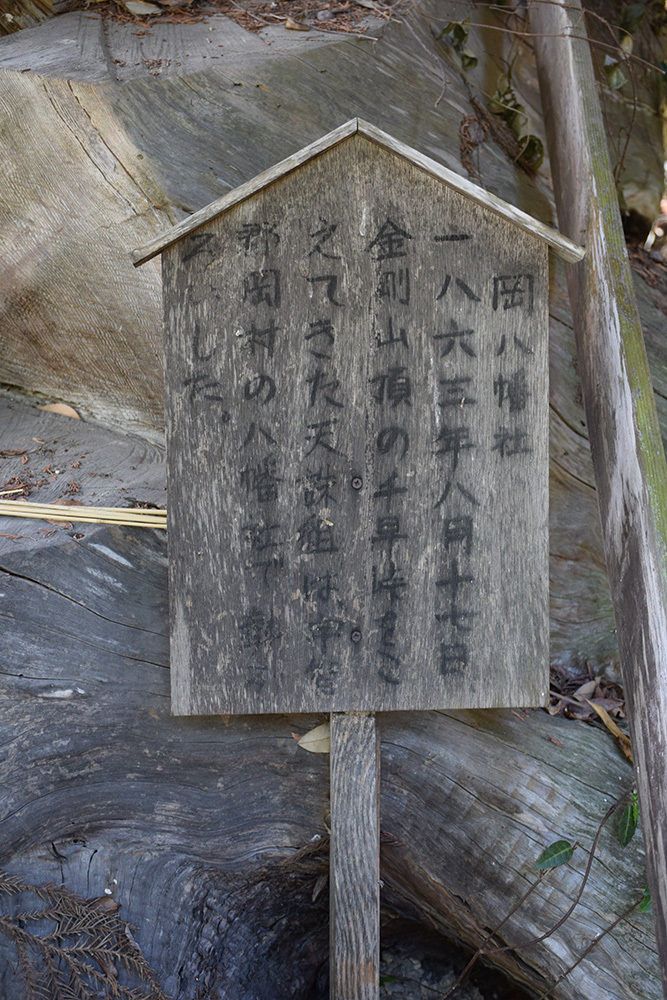 岡八幡社
一八六三年八月十七日
金剛山頂の千早峠をこ
えてきた天誅組は宇智
郡岡村の八幡社で勢ぞ
ろいした。